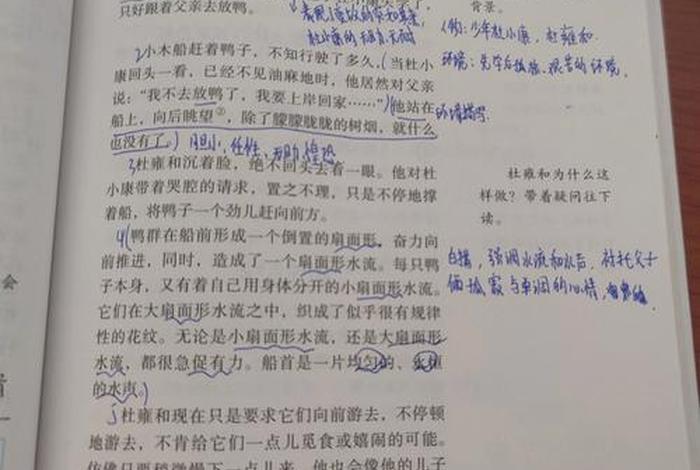 只好跟着父亲去放鸭。
背景。
人物：少年杜小康，杜雍和
2小木船赶着鸭子，不知行驶了多久，（当杜小
康回头一看，已经不见油麻地时，他居然对父亲
说：“我不去放鸭了，我要上岸回家……”）（他站在
船上，向后眺望②，除了朦朦胧胧的树烟，就什么
也没有了。）胆小，任性，
环境描写
3杜雍和沉着脸，绝不回头去看一眼。他对杜
小康带着哭腔的请求，置之不理，只是不停地撑
着船，将鸭子一个劲儿赶向前方。
杜雍和为什么这
样做？带着疑问往下
读。
4（鸭群在船前形成一个倒置的扇面形，奋力向
前推进，同时，造成了一个扇面形水流。每只鸭
子本身，又有着自己用身体分开的小扇面形水流。
它们在大扇面形水流之中，织成了似乎很有规律
性的花纹。无论是小扇面形水流，还是大扇面形
水流，都很急促有力。船首是一片均匀的、永恒
的水声。）
白描，强调水流和水声，衬托父子
俩孤寂与单调的心情，
5杜雍和现在只是要求它们向前游去，不停顿
地游去，不肯给它们一点儿觅食或嬉闹的可能。
仿佛只要稍微慢下一点儿来，他也会像他的儿子
会